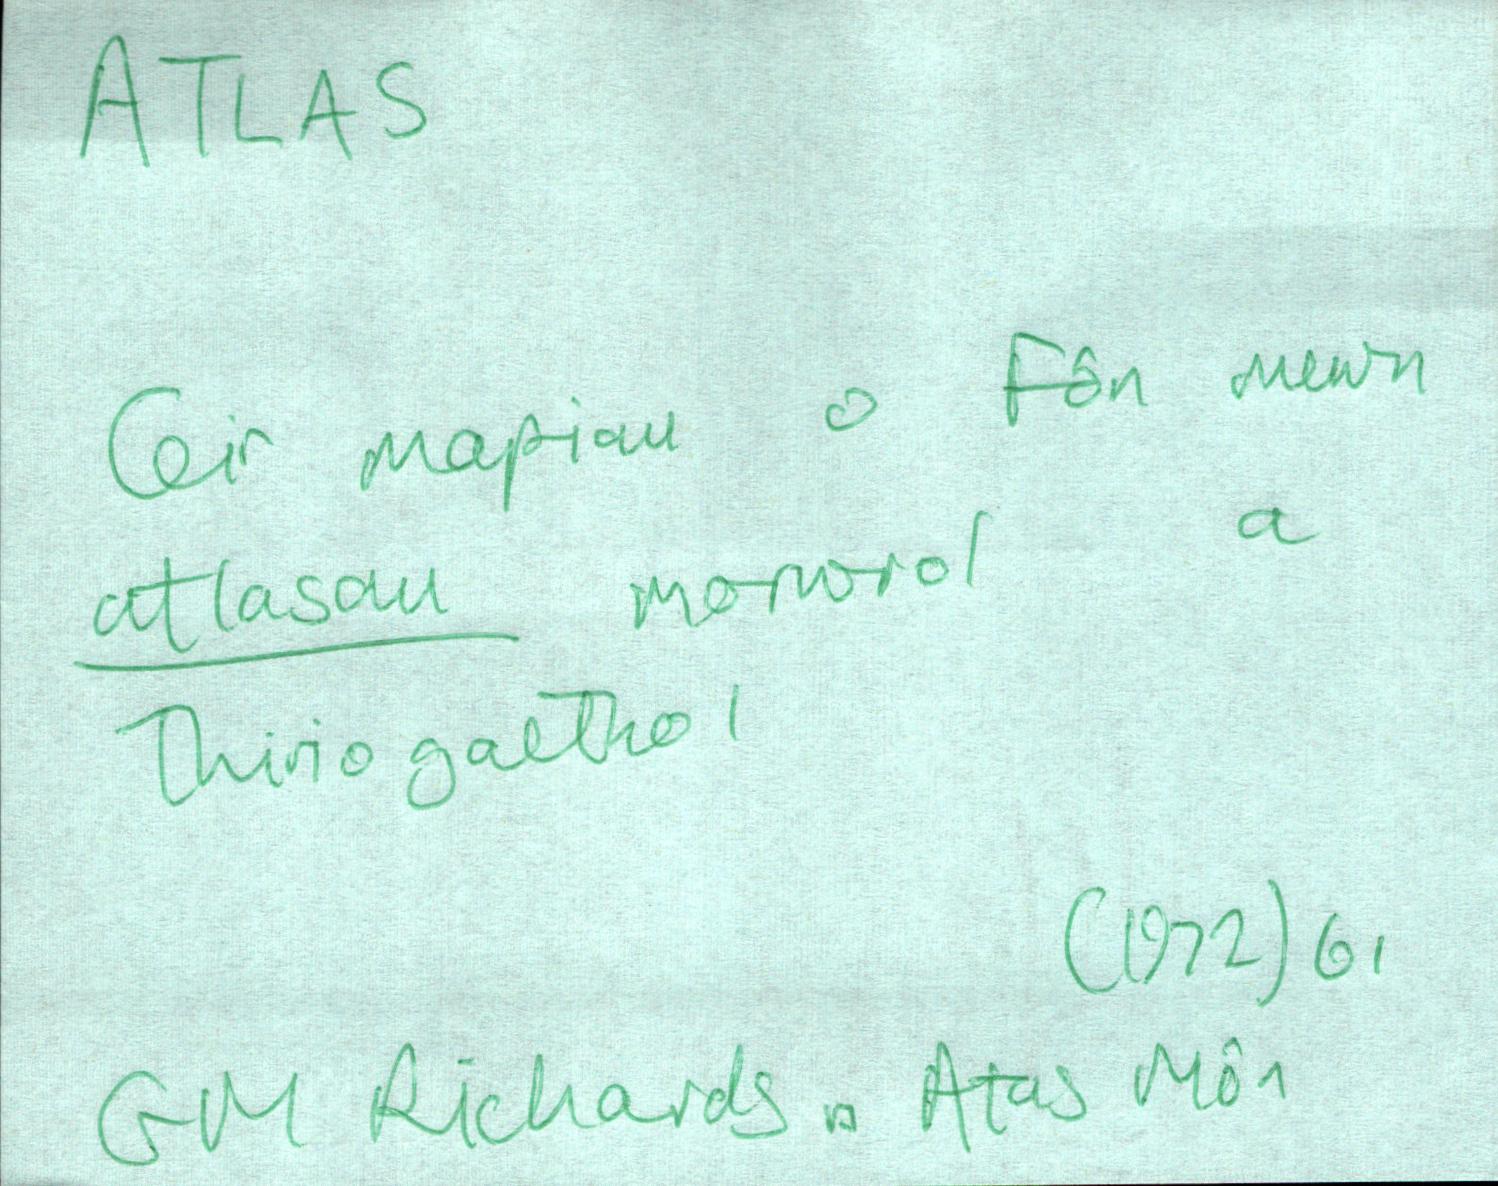 ATLAS
Ceir mapiau o Fôn mewn
atlasau morwrol a
thiriogaethol
(1972) 61
GM Richards n Atas Môn